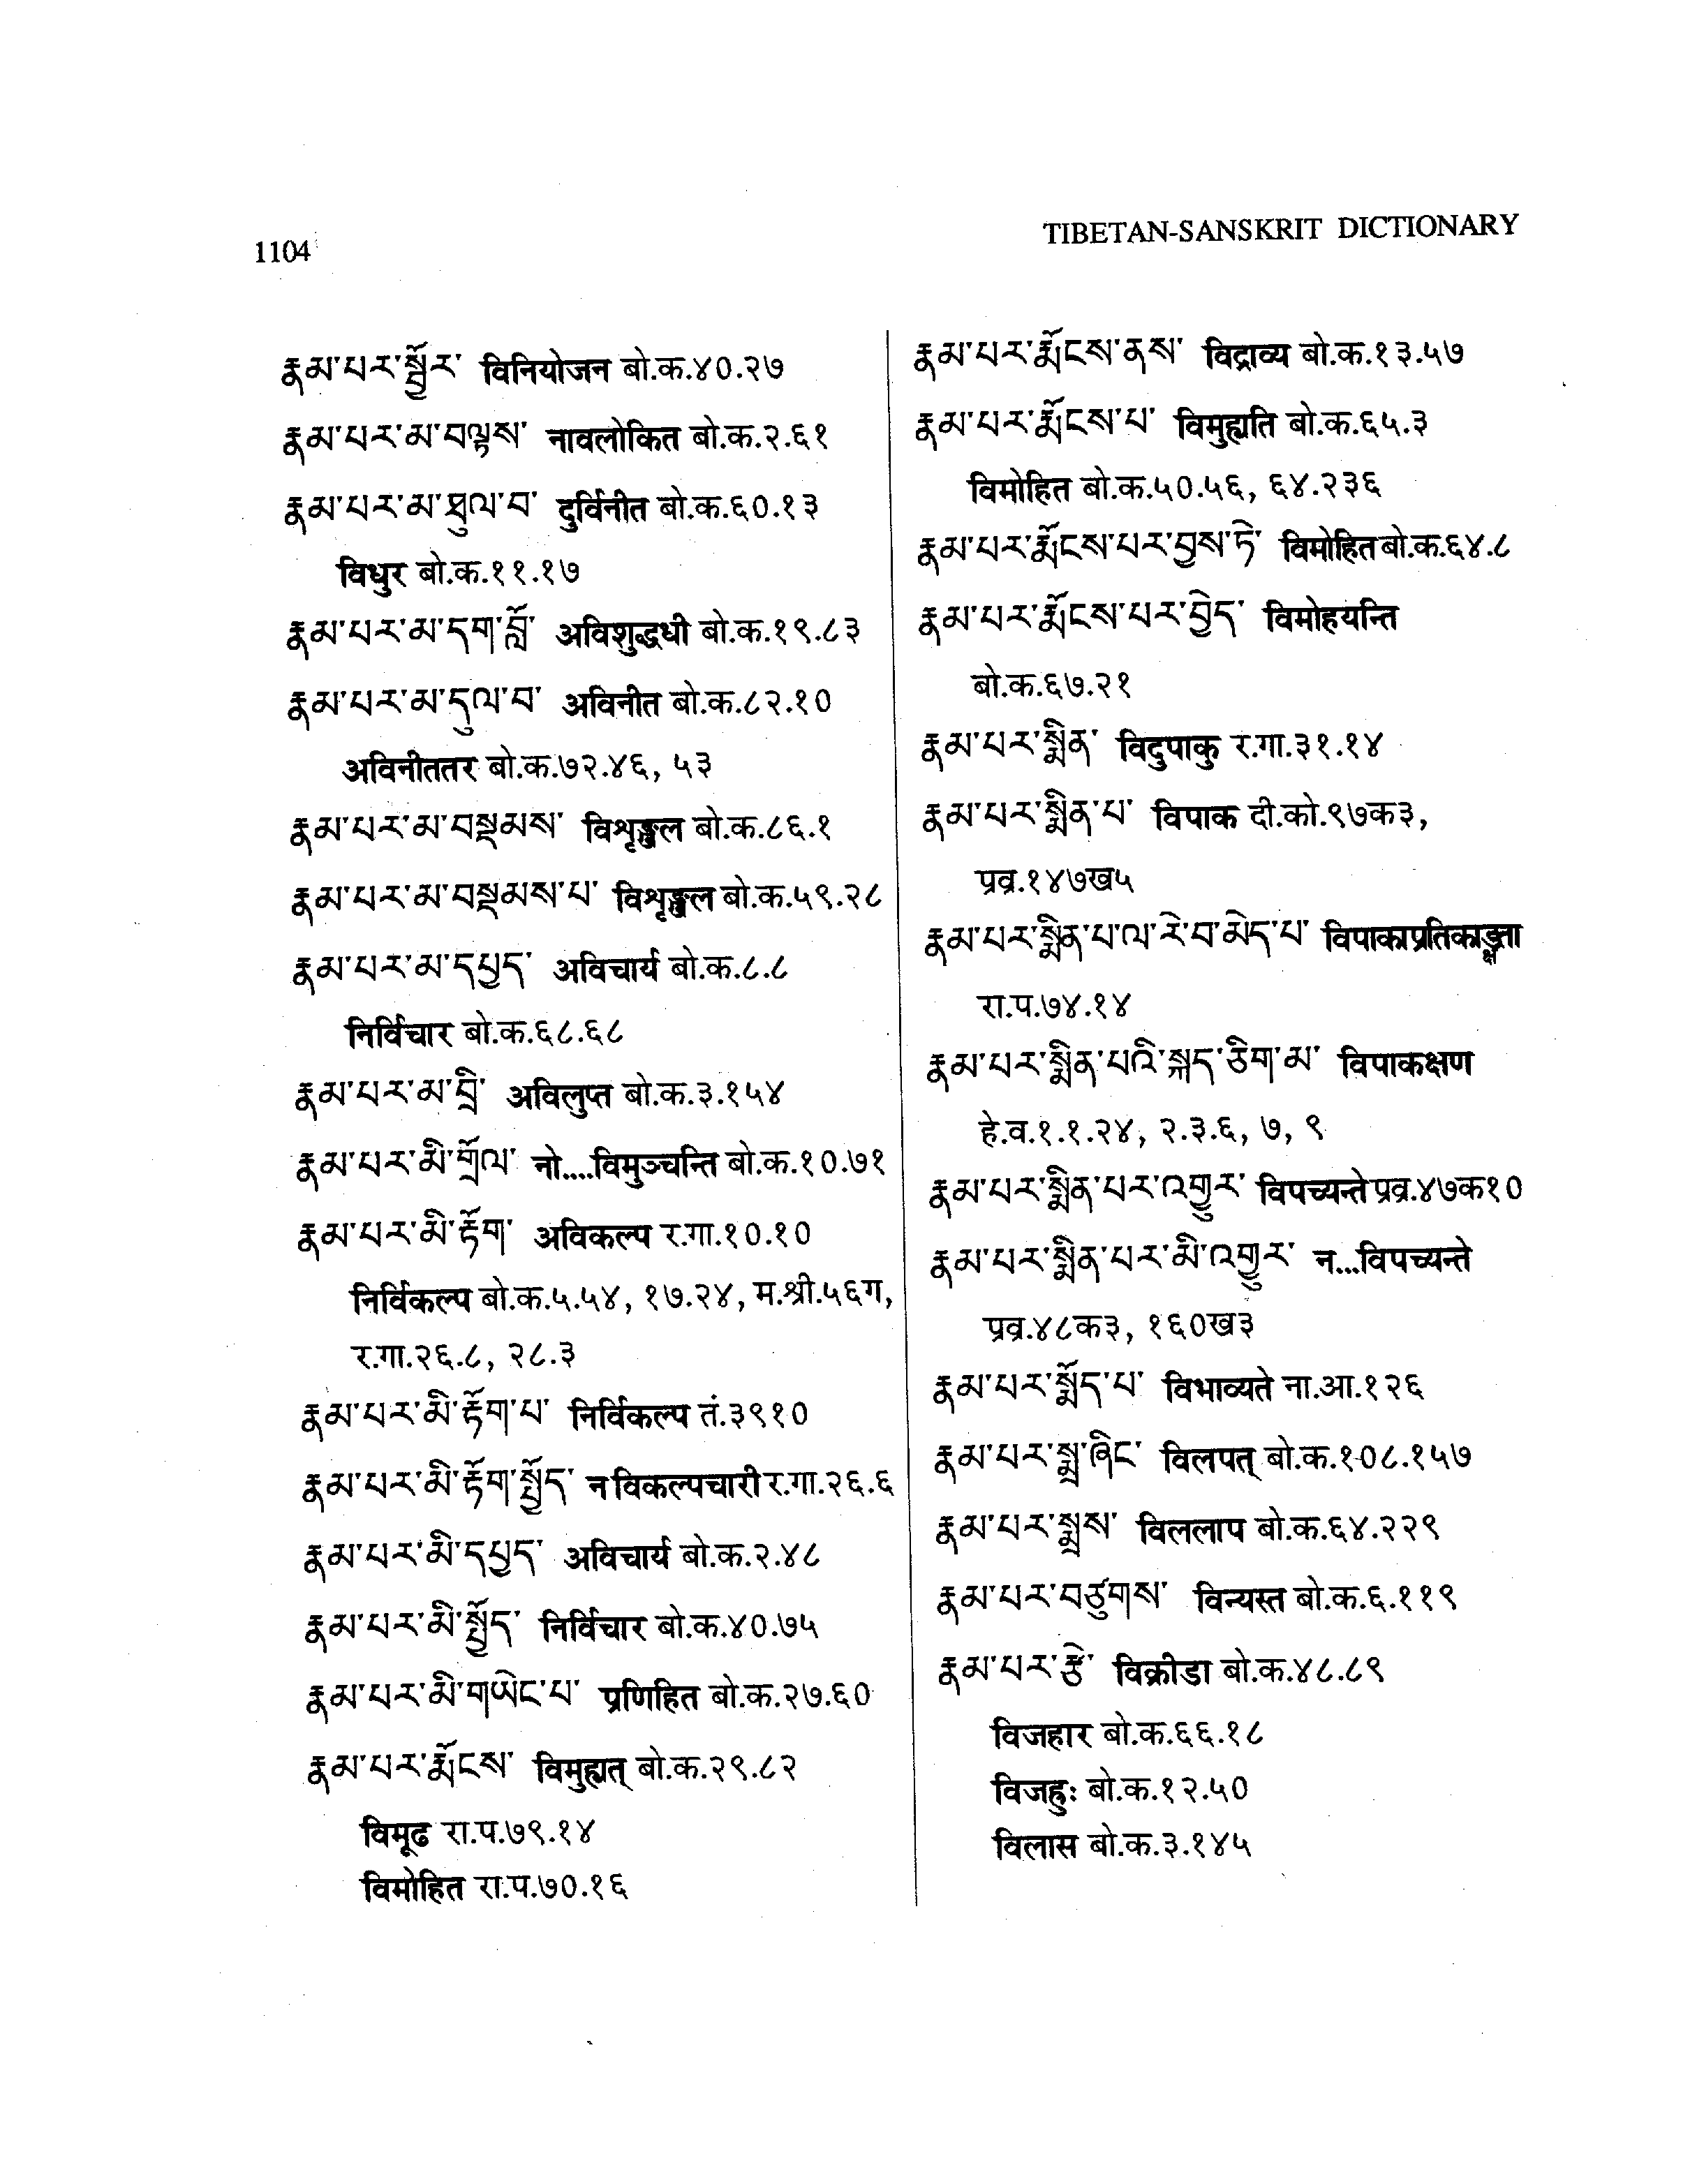 1104
TIBETAN-SANSKRIT DICTIONARY
རྣམ་པར་སྦྱོར་ विनियोजन बो.क.४०.२७
རྣམ་པར་མ་བལྟས་ नावलोकित बो.क.२.६१
རྣམ་པར་མ་ཐུལ་བ་ दुर्विनीत बो.क.६०.१३
विधुर बो.क.११.१७
རྣམ་པར་མ་དག་བློ་ अविशुद्धधी बो.क.१९.८३
རྣམ་པར་མ་དུལ་བ་ अविनीत बो.क.८२.१०
अविनीततर बो.क.७२.४६, ५३
རྣམ་པར་མ་བསྡམས་ विशृङ्खल बो.क.८६.१
རྣམ་པར་མ་བསྡམས་པ་ विशृङ्खल बो.क.५९.२८
རྣམ་པར་མ་དཔྱད་ अविचार्य बो.क.८.८
निर्विचार बो.क.६८.६८
རྣམ་པར་མ་བྲི་ अविलुप्त बो.क.३.१५४
རྣམ་པར་མི་གྲོལ་ नो....विमुञ्चन्ति बो.क.१०.७१
རྣམ་པར་མི་རྟོག་ अविकल्प र.गा.१०.१०
निर्विकल्प बो.क.५.५४, १७.२४, म.श्री.५६ग,
र.गा.२६.८, २८.३
རྣམ་པར་མི་རྟོག་པ་ निर्विकल्प तं.३९१०
རྣམ་པར་མི་རྟོག་སྤྱོད་ न विकल्पचारी र.गा.२६.६
རྣམ་པར་མི་དཔྱད་ अविचार्य बो.क.२.४८
རྣམ་པར་མི་སྤྱོད་ निर्विचार बो.क.४०.७५
རྣམ་པར་མི་གཡེང་པ་ प्रणिहित बो.क.२७.६०
རྣམ་པར་རྨོངས་ विमुह्यत् बो.क.२९.८२
विमूढ रा.प.७९.१४
विमोहित रा.प.७०.१६
རྣམ་པར་རྨོངས་ནས་ विद्राव्य बो.क.१३.५७
རྣམ་པར་རྨོངས་པ་ विमुह्यति बो.क.६५.३
विमोहित बो.क.५०.५६, ६४.२३६
རྣམ་པར་རྨོངས་པར་བྱས་ཏེ་ विमोहित बो.क.६४.८
རྣམ་པར་རྨོངས་པར་བྱེད་ विमोहयन्ति
बो.क.६७.२१
རྣམ་པར་སྨིན་ विदुपाकु र.गा.३१.१४
རྣམ་པར་སྨིན་པ་ विपाक दी.को.९७क३,
प्रव्र.१४७ख५
རྣམ་པར་སྨིན་པ་ལ་རེ་བ་མེད་པ་ विपाकाप्रतिकाङ्क्षा
रा.प.७४.१४
རྣམ་པར་སྨིན་པའི་སྐད་ཅིག་མ་ विपाकक्षण
हे.व.१.१.२४, २.३.६, ७, ९
རྣམ་པར་སྨིན་པར་འགྱུར་ विपच्यन्ते प्रव्र.४७क१०
རྣམ་པར་སྨིན་པར་མི་འགྱུར་ न...विपच्यन्ते
प्रव्र.४८क३, १६०ख३
རྣམ་པར་སྨོད་པ་ विभाव्यते ना.आ.१२६
རྣམ་པར་སྨྲ་ཞིང་ विलपत् बो.क.१०८.१५७
རྣམ་པར་སྨྲས་ विललाप बो.क.६४.२२९
རྣམ་པར་བཙུགས་ विन्यस्त बो.क.६.११९
རྣམ་པར་རྩེ་ विक्रीडा बो.क.४८.८९
विजहार बो.क.६६.१८
विजह्रुः बो.क.१२.५०
विलास बो.क.३.१४५